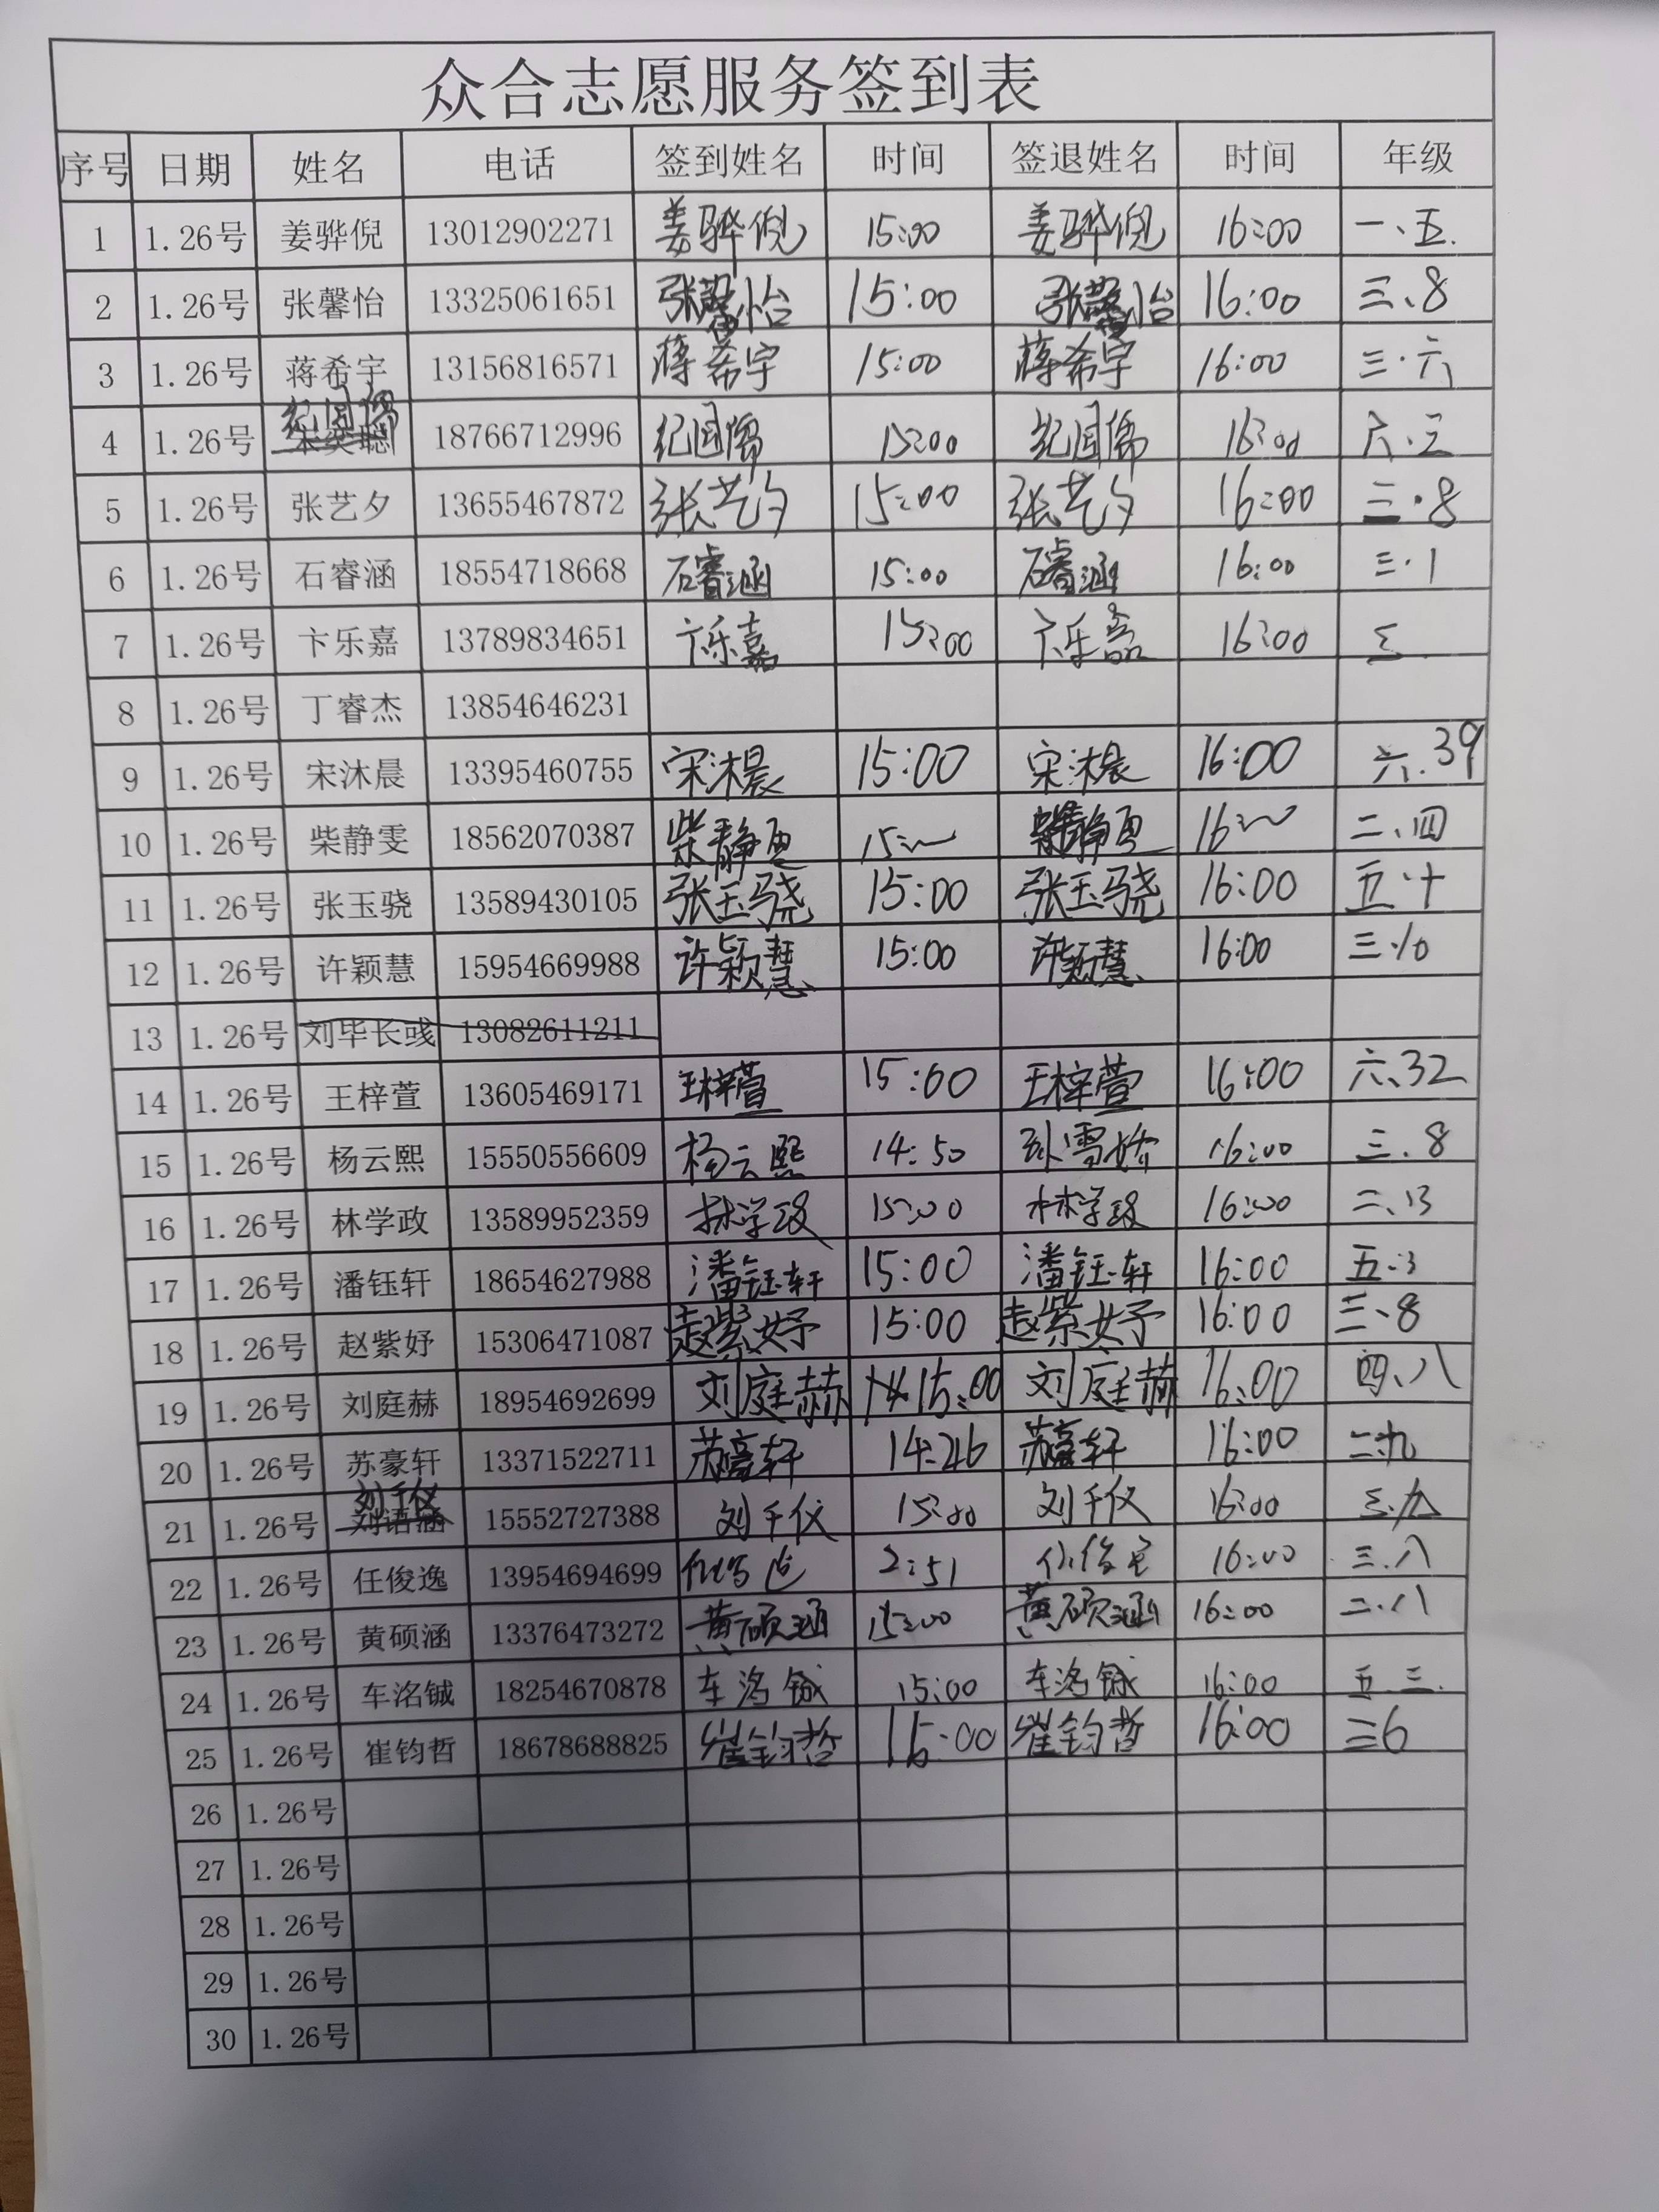 众合志愿服务签到表
序号 日期 姓名 电话 签到姓名 时间 签退姓名 时间 年级
1 1.26号 姜骅倪 13012902271 姜骅倪 15:00 姜骅倪 16:00 一、五.
2 1.26号 张馨怡 13325061651 张馨怡 15:00 张馨怡 16:00 三、8
3 1.26号 蒋希宇 13156816571 蒋希宇 15:00 蒋希宇 16:00 三·六
4 1.26号 纪国儒 18766712996 纪国儒 15:00 纪国儒 16:00 六.三
5 1.26号 张艺夕 13655467872 张艺夕 15:00 张艺夕 16:00 三·8
6 1.26号 石睿涵 18554718668 石睿涵 15:00 石睿涵 16:00 三·1
7 1.26号 卞乐嘉 13789834651 卞乐嘉 15:00 卞乐嘉 16:00 三
8 1.26号 丁睿杰 13854646231
9 1.26号 宋沐晨 13395460755 宋沐晨 15:00 宋沐晨 16:00 六.39
10 1.26号 柴静雯 18562070387 柴静雯 15:00 柴静雯 16:00 二、四
11 1.26号 张玉骁 13589430105 张玉骁 15:00 张玉骁 16:00 五·十
12 1.26号 许颖慧 15954669988 许颖慧 15:00 许颖慧 16:00 三·10
13 1.26号 刘毕长彧 13082611211
14 1.26号 王梓萱 13605469171 王梓萱 15:00 王梓萱 16:00 六、32
15 1.26号 杨云熙 15550556609 杨云熙 14:50 孙雪娇 16:00 三、8
16 1.26号 林学政 13589952359 林学政 15:00 林学政 16:00 二、13
17 1.26号 潘钰轩 18654627988 潘钰轩 15:00 潘钰轩 16:00 五.3
18 1.26号 赵紫妤 15306471087 赵紫妤 15:00 赵紫妤 16:00 三、8
19 1.26号 刘庭赫 18954692699 刘庭赫 15:00 刘庭赫 16:00 四、八
20 1.26号 苏豪轩 13371522711 苏豪轩 14:46 苏豪轩 16:00 二.九
21 1.26号 刘千仪 15552727388 刘千仪 15:00 刘千仪 16:00 三.九
22 1.26号 任俊逸 13954694699 2:51 16:00 三.八
23 1.26号 黄硕涵 13376473272 黄硕涵 15:00 黄硕涵 16:00 二.八
24 1.26号 车洺铖 18254670878 车洺铖 15:00 车洺铖 16:00 五.三.
25 1.26号 崔钧哲 18678688825 崔钧哲 15:00 崔钧哲 16:00 三6
26 1.26号
27 1.26号
28 1.26号
29 1.26号
30 1.26号